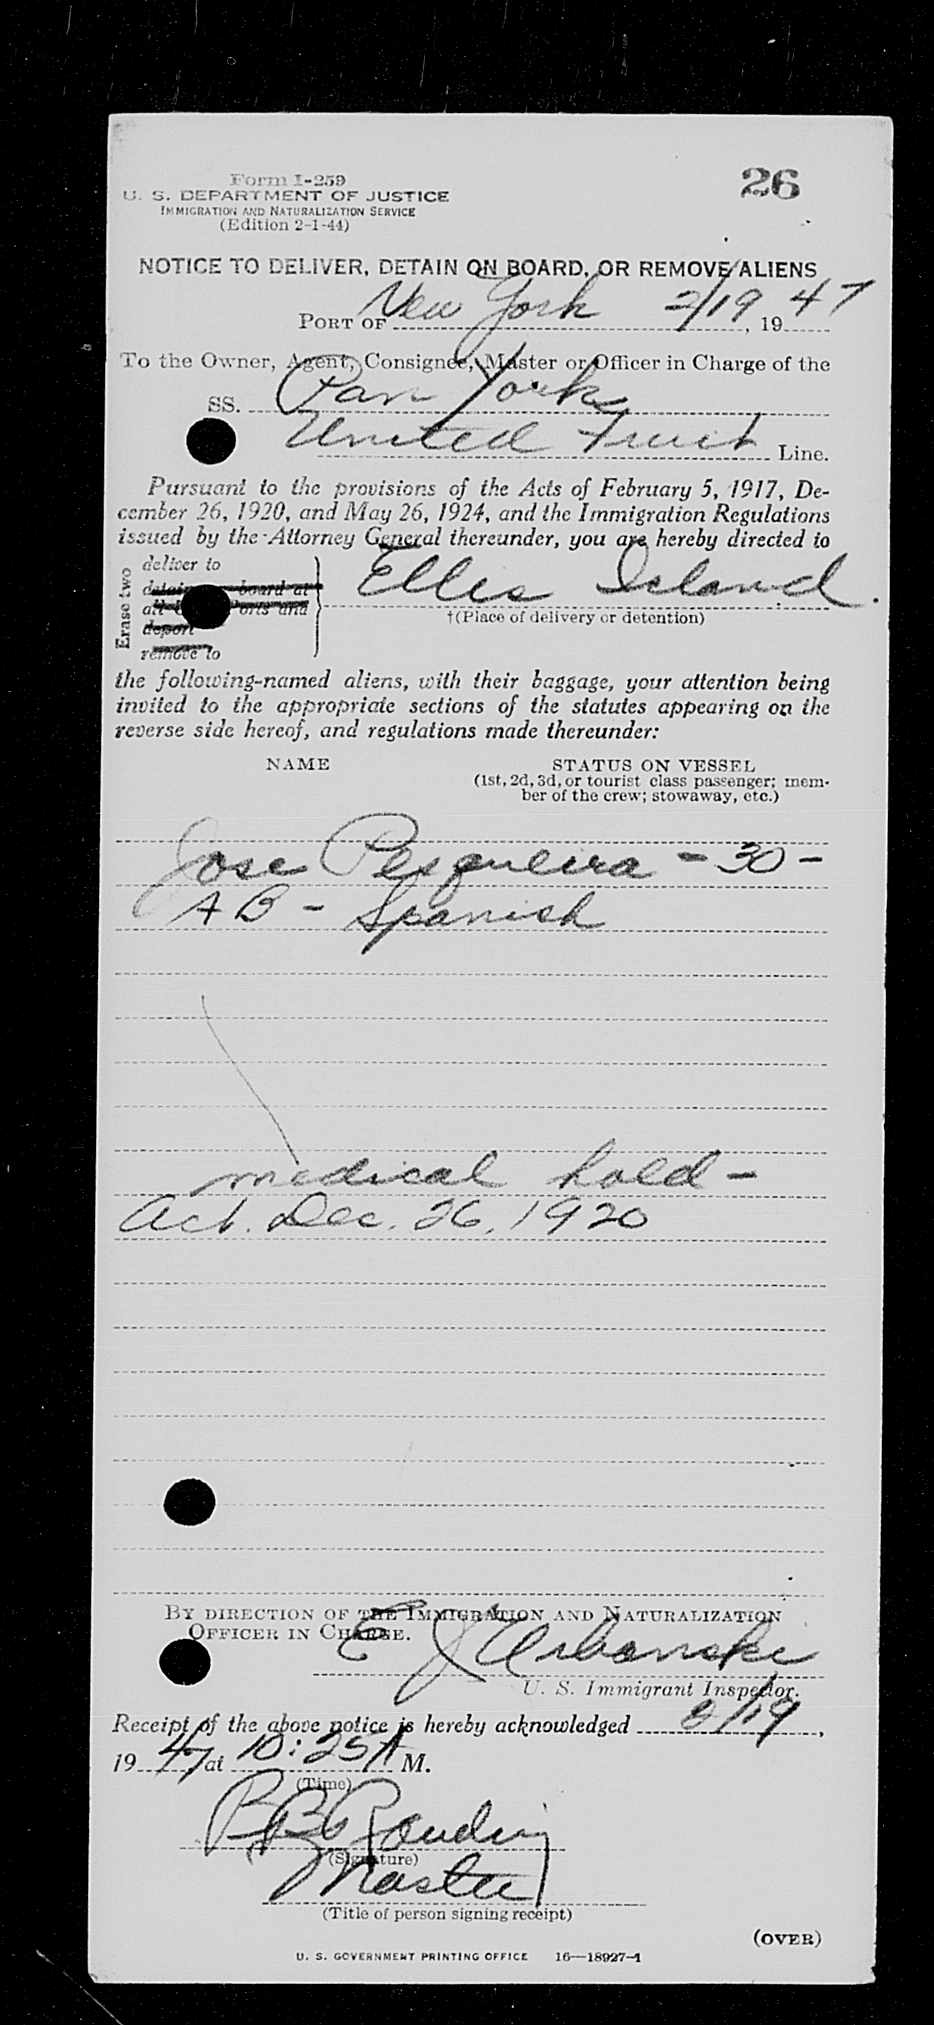 26
Form I-259
U. S. DEPARTMENT OF JUSTICE
IMMIGRATION AND NATURALIZATION SERVICE
(Edition 2-1-44)
NOTICE TO DELIVER, DETAIN ON BOARD, OR REMOVE ALIENS
PORT OF New York 2/19, 1947
To the Owner, Agent, Consignee, Master or Officer in Charge of the
SS. Pan York
United Fruit Line.
Pursuant to the provisions of the Acts of February 5, 1917, De-
cember 26, 1920, and May 26, 1924, and the Immigration Regulations
issued by the Attorney General thereunder, you are hereby directed to
Erase two
deliver to
detain on board at
all U. S. Ports and
deport
remove to
Ellis Island.
†(Place of delivery or detention)
the following-named aliens, with their baggage, your attention being
invited to the appropriate sections of the statutes appearing on the
reverse side hereof, and regulations made thereunder:
NAME STATUS ON VESSEL
(1st, 2d, 3d, or tourist class passenger; mem-
ber of the crew; stowaway, etc.)
Jose Pesqueira - 30 -
AB - Spanish
medical hold -
Act. Dec. 26, 1920
BY DIRECTION OF THE IMMIGRATION AND NATURALIZATION
OFFICER IN CHARGE.
E J Urbanski
U. S. Immigrant Inspector.
Receipt of the above notice is hereby acknowledged 2/19,
1947 at 10:25 A M.
(Time)
(Signature)
Master
(Title of person signing receipt)
(OVER)
U. S. GOVERNMENT PRINTING OFFICE 16—18927-1